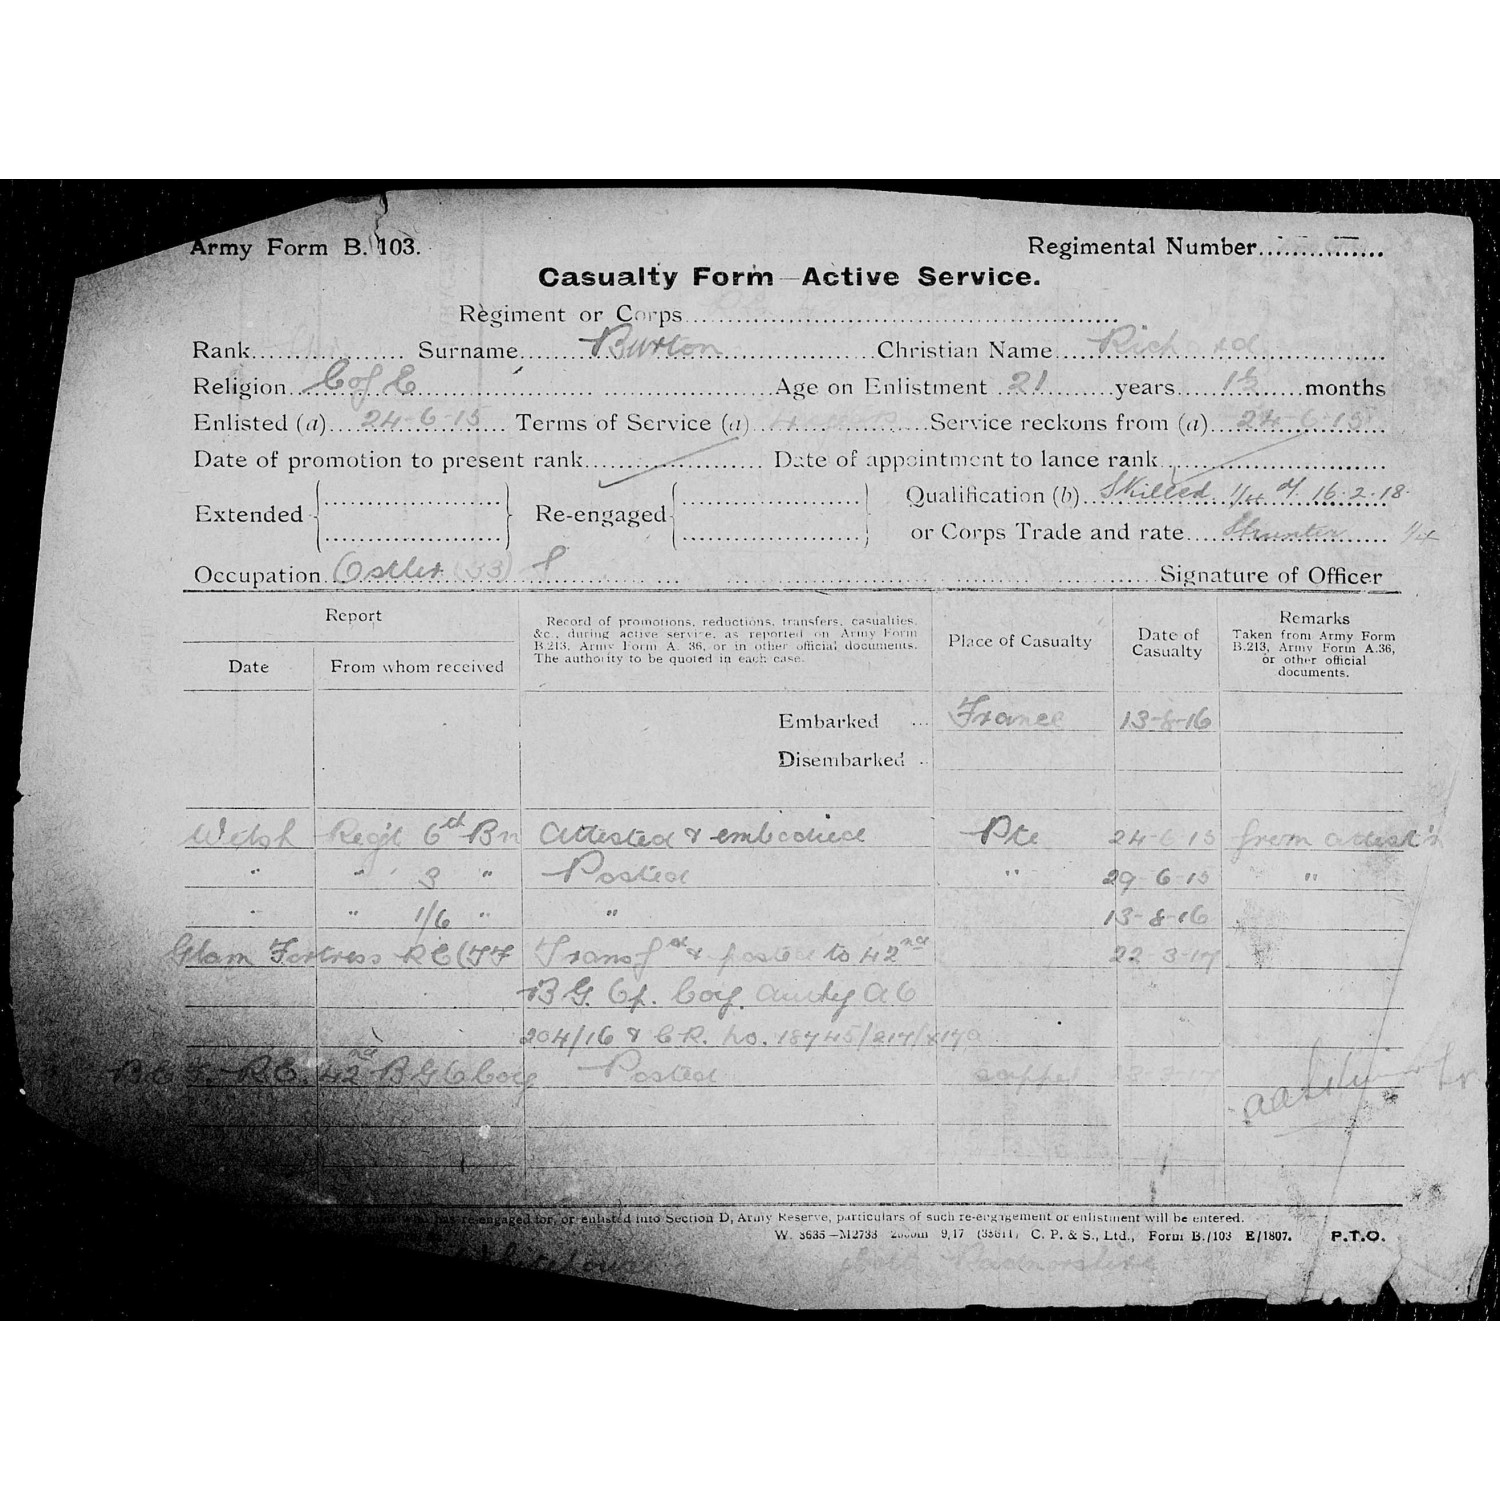 Army Form B. 103.
Regimental Number
Casualty Form—Active Service.
Regiment or Corps
Rank Surname Burton Christian Name Richard
Religion C of E Age on Enlistment 21 years 1½ months
Enlisted (a) 24-6-15 Terms of Service (a) Service reckons from (a) 24-6-15
Date of promotion to present rank Date of appointment to lance rank
Extended Re-engaged Qualification (b) Skilled 16-2-18
or Corps Trade and rate Shunter
Occupation Ostler (33) Signature of Officer
Report
Date From whom received
Record of promotions, reductions, transfers, casualties,
&c., during active service, as reported on Army Form
B.213, Army Form A. 36, or in other official documents.
The authority to be quoted in each case.
Place of Casualty
Date of
Casualty
Remarks
Taken from Army Form
B.213, Army Form A.36,
or other official
documents.
Embarked ... France 13-8-16
Disembarked
Welsh Reg't 6th Bn Attested & embodied Pte 24-6-15 from attest'n
" " 3 " Posted " 29-6-15 "
" " 1/6 " " 13-8-16
Glam Fortress RE (TF Transf'd & posted to 42nd 22-3-17
B G. Op. Coy. Authy A C
204/16 & C.R. No. 18745/217/
B.E.F. R.E. 42nd B G Coy Posted sapper
re-engaged for, or enlisted into Section D, Army Reserve, particulars of such re-engagement or enlistment will be entered.
W. 3635—M2733 9/17 C. P. & S., Ltd., Form B./103 E/1807. P.T.O.
Radnorshire